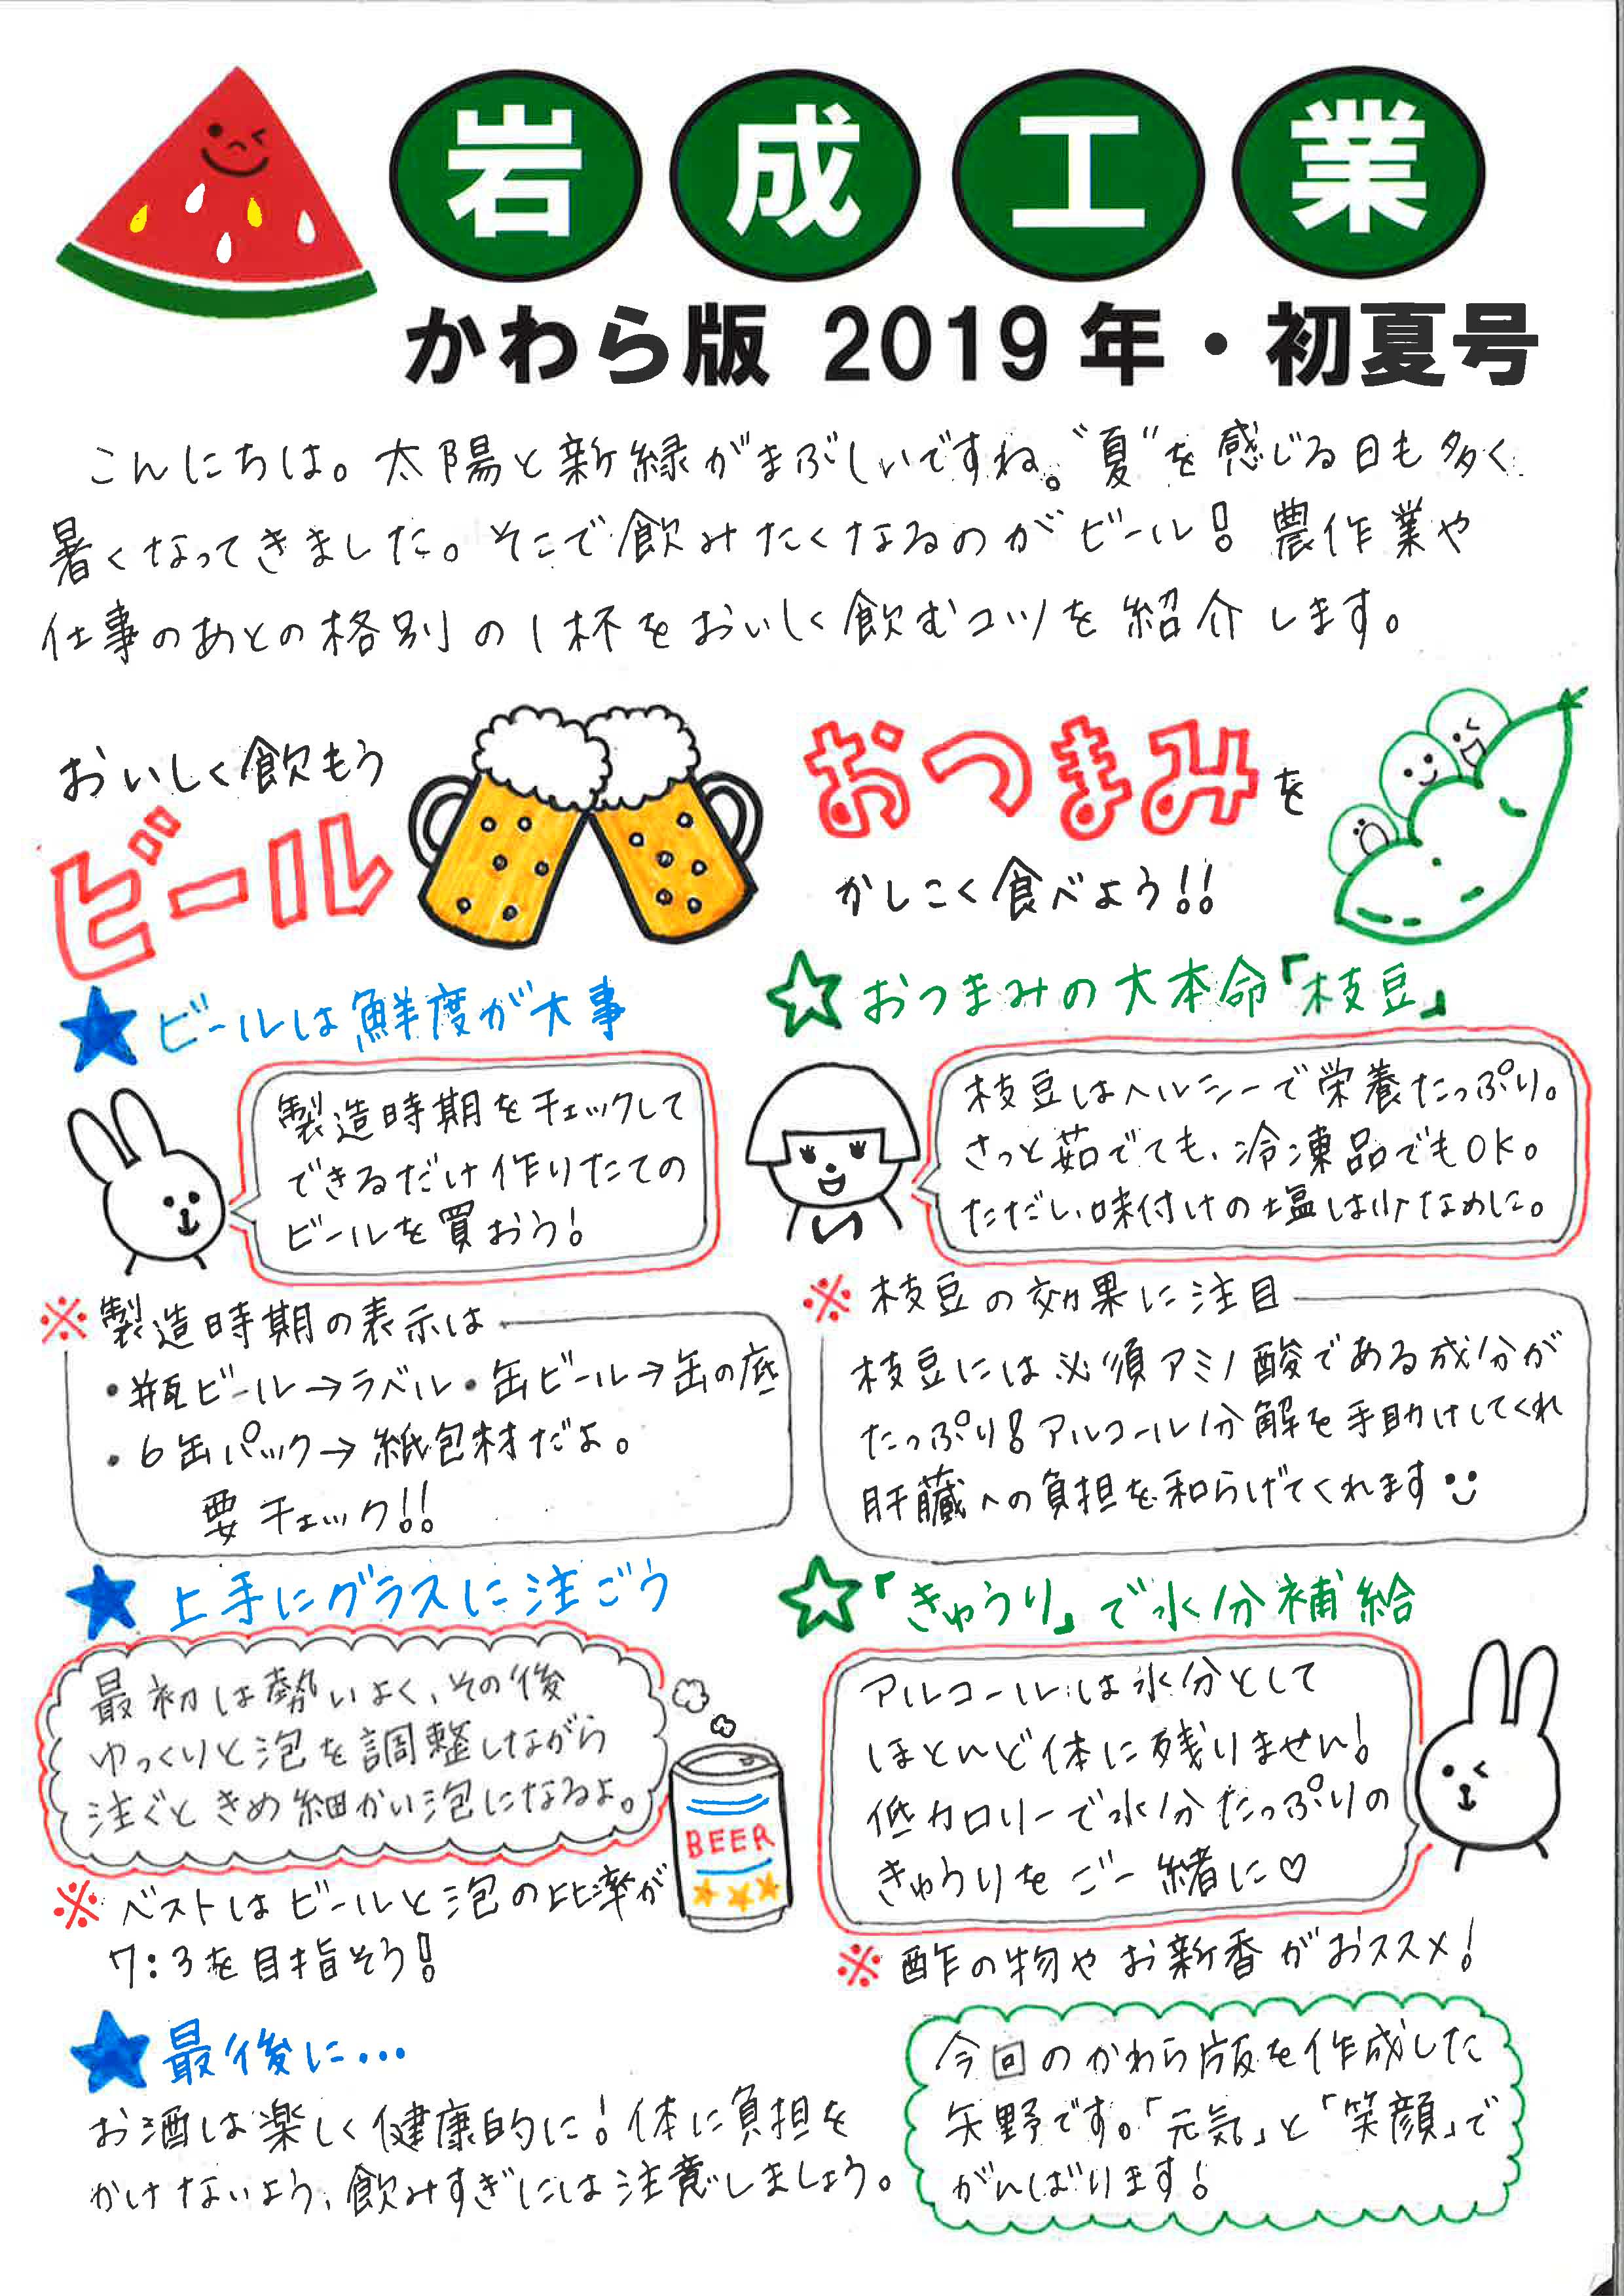 岩成工業
かわら版 2019年・初夏号
こんにちは。太陽と新緑がまぶしいですね。"夏"を感じる日も多く
暑くなってきました。そこで飲みたくなるのがビール！農作業や
仕事のあとの格別の1杯をおいしく飲むコツを紹介します。
おいしく飲もう
ビール
★ビールは鮮度が大事
製造時期をチェックして
できるだけ作りたての
ビールを買おう！
※製造時期の表示は
・瓶ビール→ラベル・缶ビール→缶の底
・6缶パック→紙包材だよ。
要チェック!!
★上手にグラスに注ごう
最初は勢いよく、その後
ゆっくりと泡を調整しながら
注ぐときめ細かい泡になるよ。
BEER
※ベストはビールと泡の比率が
7:3を目指そう！
★最後に…
お酒は楽しく健康的に！体に負担を
かけないよう、飲みすぎには注意しましょう。
おつまみを
かしこく食べよう!!
☆おつまみの大本命「枝豆」
枝豆はヘルシーで栄養たっぷり。
さっと茹でても、冷凍品でもOK。
ただし味付けの塩は少なめに。
※枝豆の効果に注目
枝豆には必須アミノ酸である成分が
たっぷり！アルコール分解を手助けしてくれ
肝臓への負担を和らげてくれます
☆「きゅうり」で水分補給
アルコールは水分として
ほとんど体に残りません！
低カロリーで水分たっぷりの
きゅうりをご一緒に♡
※酢の物やお新香がおススメ！
今回のかわら版を作成した
矢野です。「元気」と「笑顔」で
がんばります！